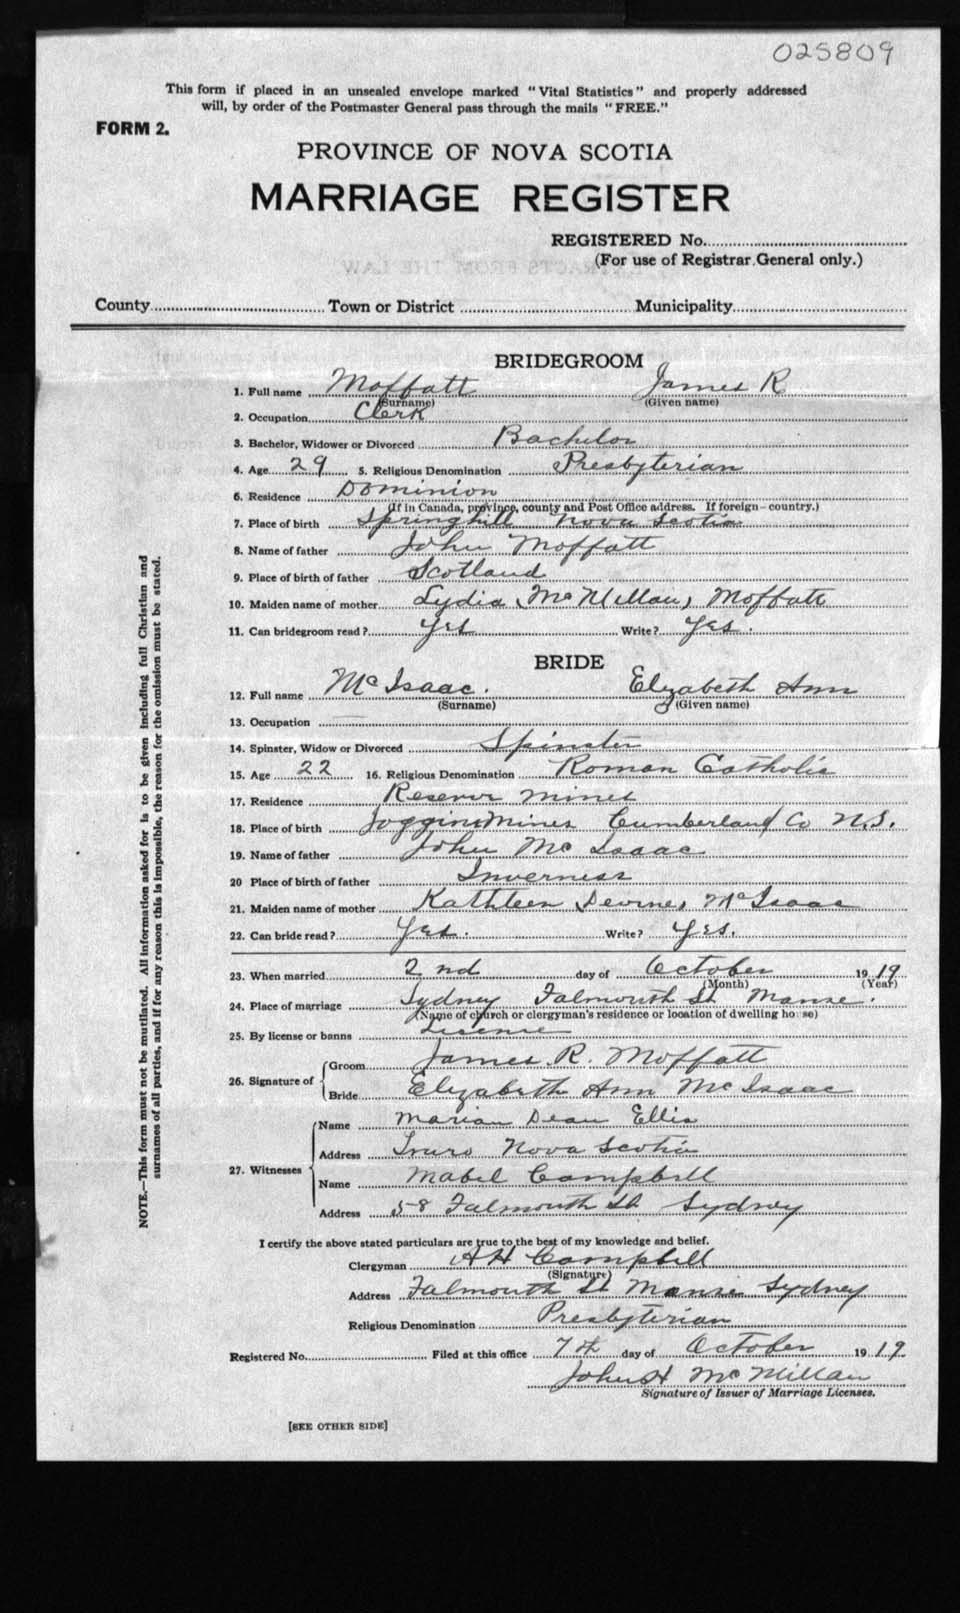 025809
This form if placed in an unsealed envelope marked "Vital Statistics" and properly addressed
will, by order of the Postmaster General pass through the mails "FREE."
FORM 2.
PROVINCE OF NOVA SCOTIA
MARRIAGE REGISTER
REGISTERED No.
(For use of Registrar General only.)
County Town or District Municipality
BRIDEGROOM
1. Full name Moffatt James R
(Surname) (Given name)
2. Occupation Clerk
3. Bachelor, Widower or Divorced Bachelor
4. Age 29 5. Religious Denomination Presbyterian
6. Residence Dominion
(If in Canada, province, county and Post Office address. If foreign—country.)
7. Place of birth Springhill Nova Scotia
8. Name of father John Moffatt
9. Place of birth of father Scotland
10. Maiden name of mother Lydia (McMillan) Moffatt
11. Can bridegroom read? Yes Write? Yes.
BRIDE
12. Full name McIsaac. Elizabeth Ann
(Surname) (Given name)
13. Occupation
14. Spinster, Widow or Divorced Spinster
15. Age 22 16. Religious Denomination Roman Catholic
17. Residence Reserve Mines
18. Place of birth Joggins Mines Cumberland Co N.S.
19. Name of father John McIsaac
20 Place of birth of father Inverness
21. Maiden name of mother Kathleen (Devine) McIsaac
22. Can bride read? Yes. Write? Yes.
23. When married 2nd day of October 1919
(Month) (Year)
24. Place of marriage Sydney Falmouth St Manse.
(Name of church or clergyman's residence or location of dwelling house)
25. By license or banns License
26. Signature of Groom James R. Moffatt
Bride Elizabeth Ann McIsaac
27. Witnesses Name Marian Dean Ellis
Address Truro Nova Scotia
Name Mabel Campbell
Address 58 Falmouth St Sydney
I certify the above stated particulars are true to the best of my knowledge and belief.
Clergyman A H Campbell
(Signature)
Address Falmouth St Manse Sydney
Religious Denomination Presbyterian
Registered No. Filed at this office 7th day of October 1919.
John H McMillan
Signature of Issuer of Marriage Licenses.
[SEE OTHER SIDE]
NOTE.—This form must not be mutilated. All information asked for is to be given including full Christian and
surnames of all parties, and if for any reason this is impossible, the reason for the omission must be stated.